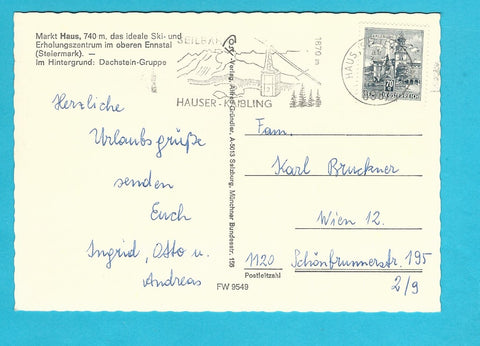 Markt Haus, 740 m, das ideale Ski- und
Erholungszentrum im oberen Ennstal
(Steiermark). —
Im Hintergrund: Dachstein-Gruppe
Herzliche
Urlaubsgrüße
senden
Euch
Ingrid, Otto u.
Andreas
Verlag Alfred Gründler, A-5013 Salzburg, Münchner Bundesstr. 156
SEILBAHN
1870 m
HAUSER-KAIBLING
HAUS
Fam.
Karl Bruckner
Wien 12.
1120 Schönbrunnerstr. 195
Postleitzahl
2/9
FW 9549